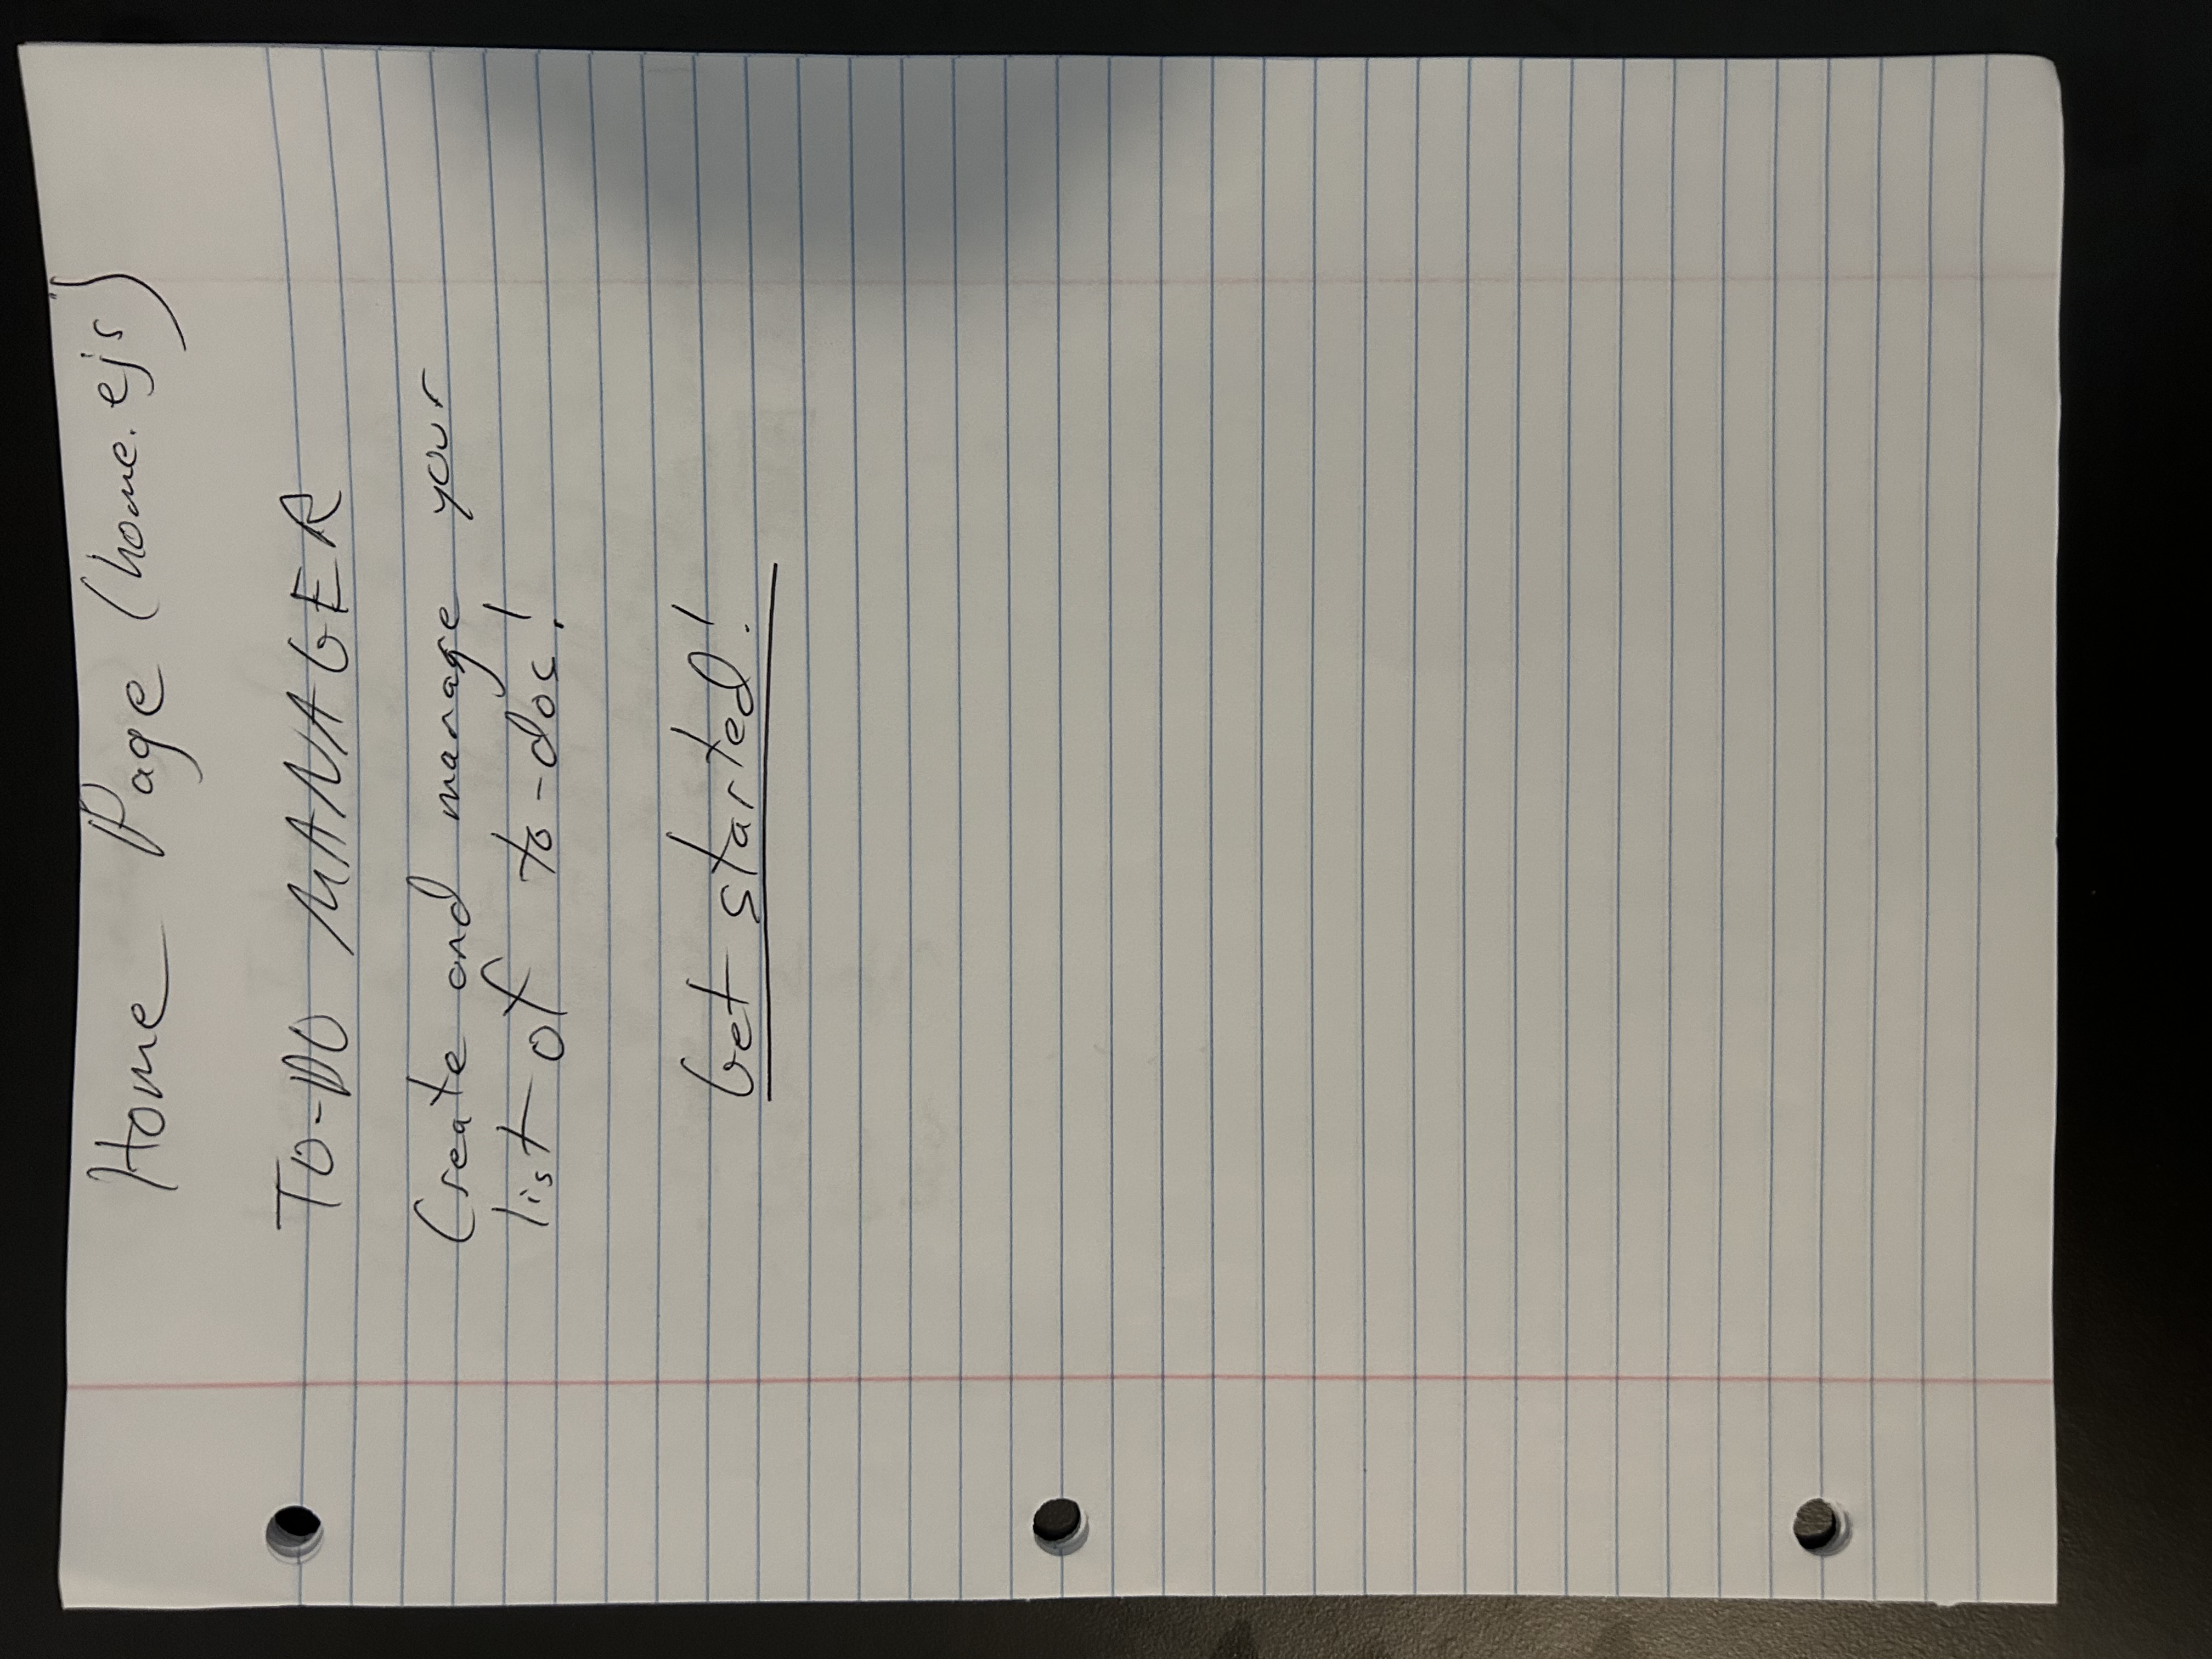 Home Page (home.ejs)
TO-DO MANAGER
Create and manage your
list of to-dos!
Get started!